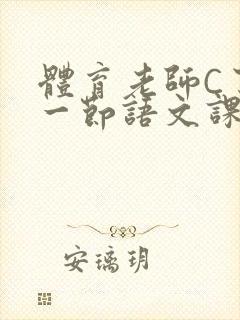 體育老師C了
一節語文課
安璃玥